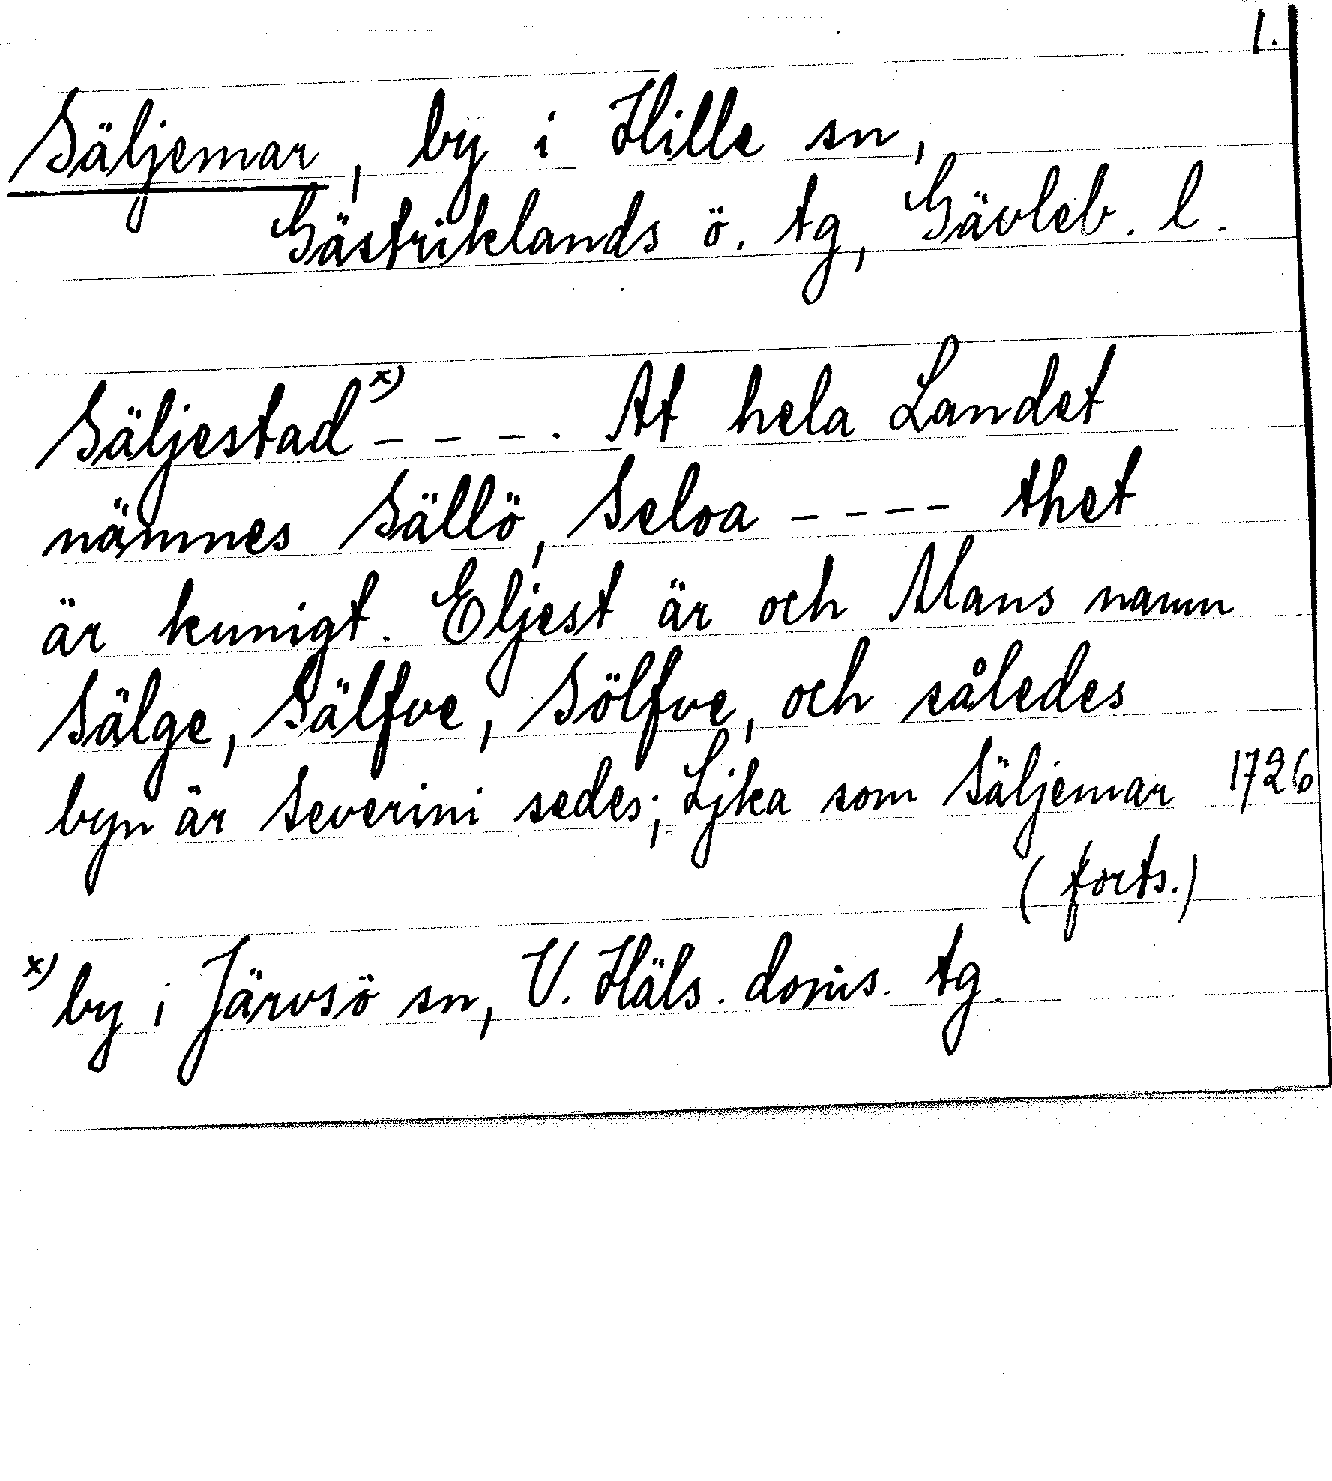 1.
Säljemar, by i Hille sn,
Gästriklands ö. tg, Gävleb. l.
Säljestad x) – – – . At hela Landet
nämnes Sällö, Seloa – – – – thet
är kunigt. Eljest är och Mans namn
Sälge, Sälfve, Sölfve, och således
byn är Severini sedes; Ljka som Säljemar 1726
(forts.)
x) by i Järvsö sn, V. Häls. doms. tg.